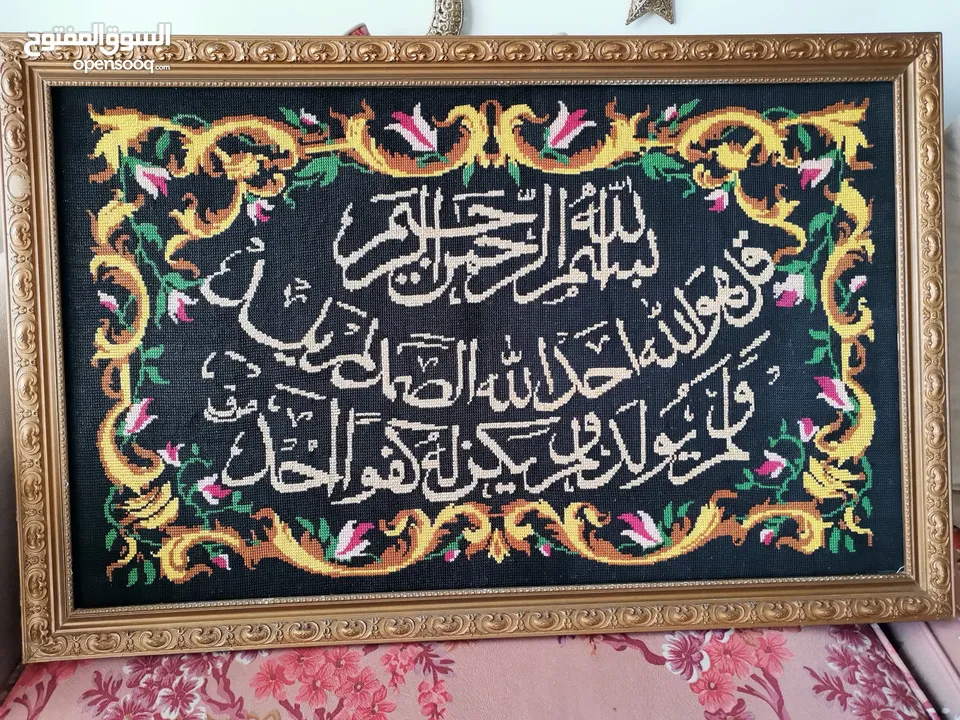 السوق المفتوح
opensooq.com
بسم الله الرحمن الرحيم
قل هو الله احد الله الصمد لم يلد
ولم يولد ولم يكن له كفوا احد